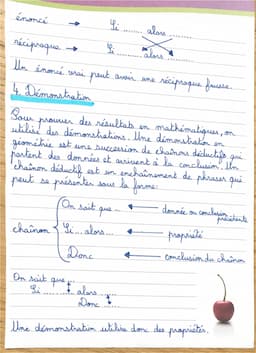 énoncé → Si ........ alors ........
réciproque → Si ........ alors ........
Un énoncé vrai peut avoir une réciproque fausse.
4. Démonstration
Pour prouver des résultats en mathématiques, on
utilise des démonstrations. Une démonstration en
géométrie est une succession de chaînons déductifs qui
partent des données et arrivent à la conclusion. Un
chaînon déductif est un enchaînement de phrases qui
peut se présenter sous la forme:
On sait que ... ← donnée ou conclusion
précédente
chaînon { Si... alors... ← propriété
Donc ← conclusion du chaînon
On sait que ...
Si ........ alors ........
Donc ........
Une démonstration utilise donc des propriétés.